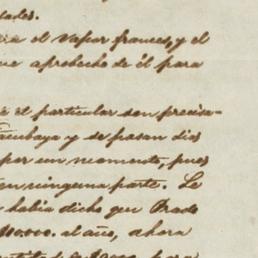 dades.
el vapor frances, y el
que aprobecho de él para
el particular son precisa-
Tacubaya y se pasan dias
por un momento, pues
en ninguna parte. Le
habia dicho que Prado
10.000. al año, ahora
para